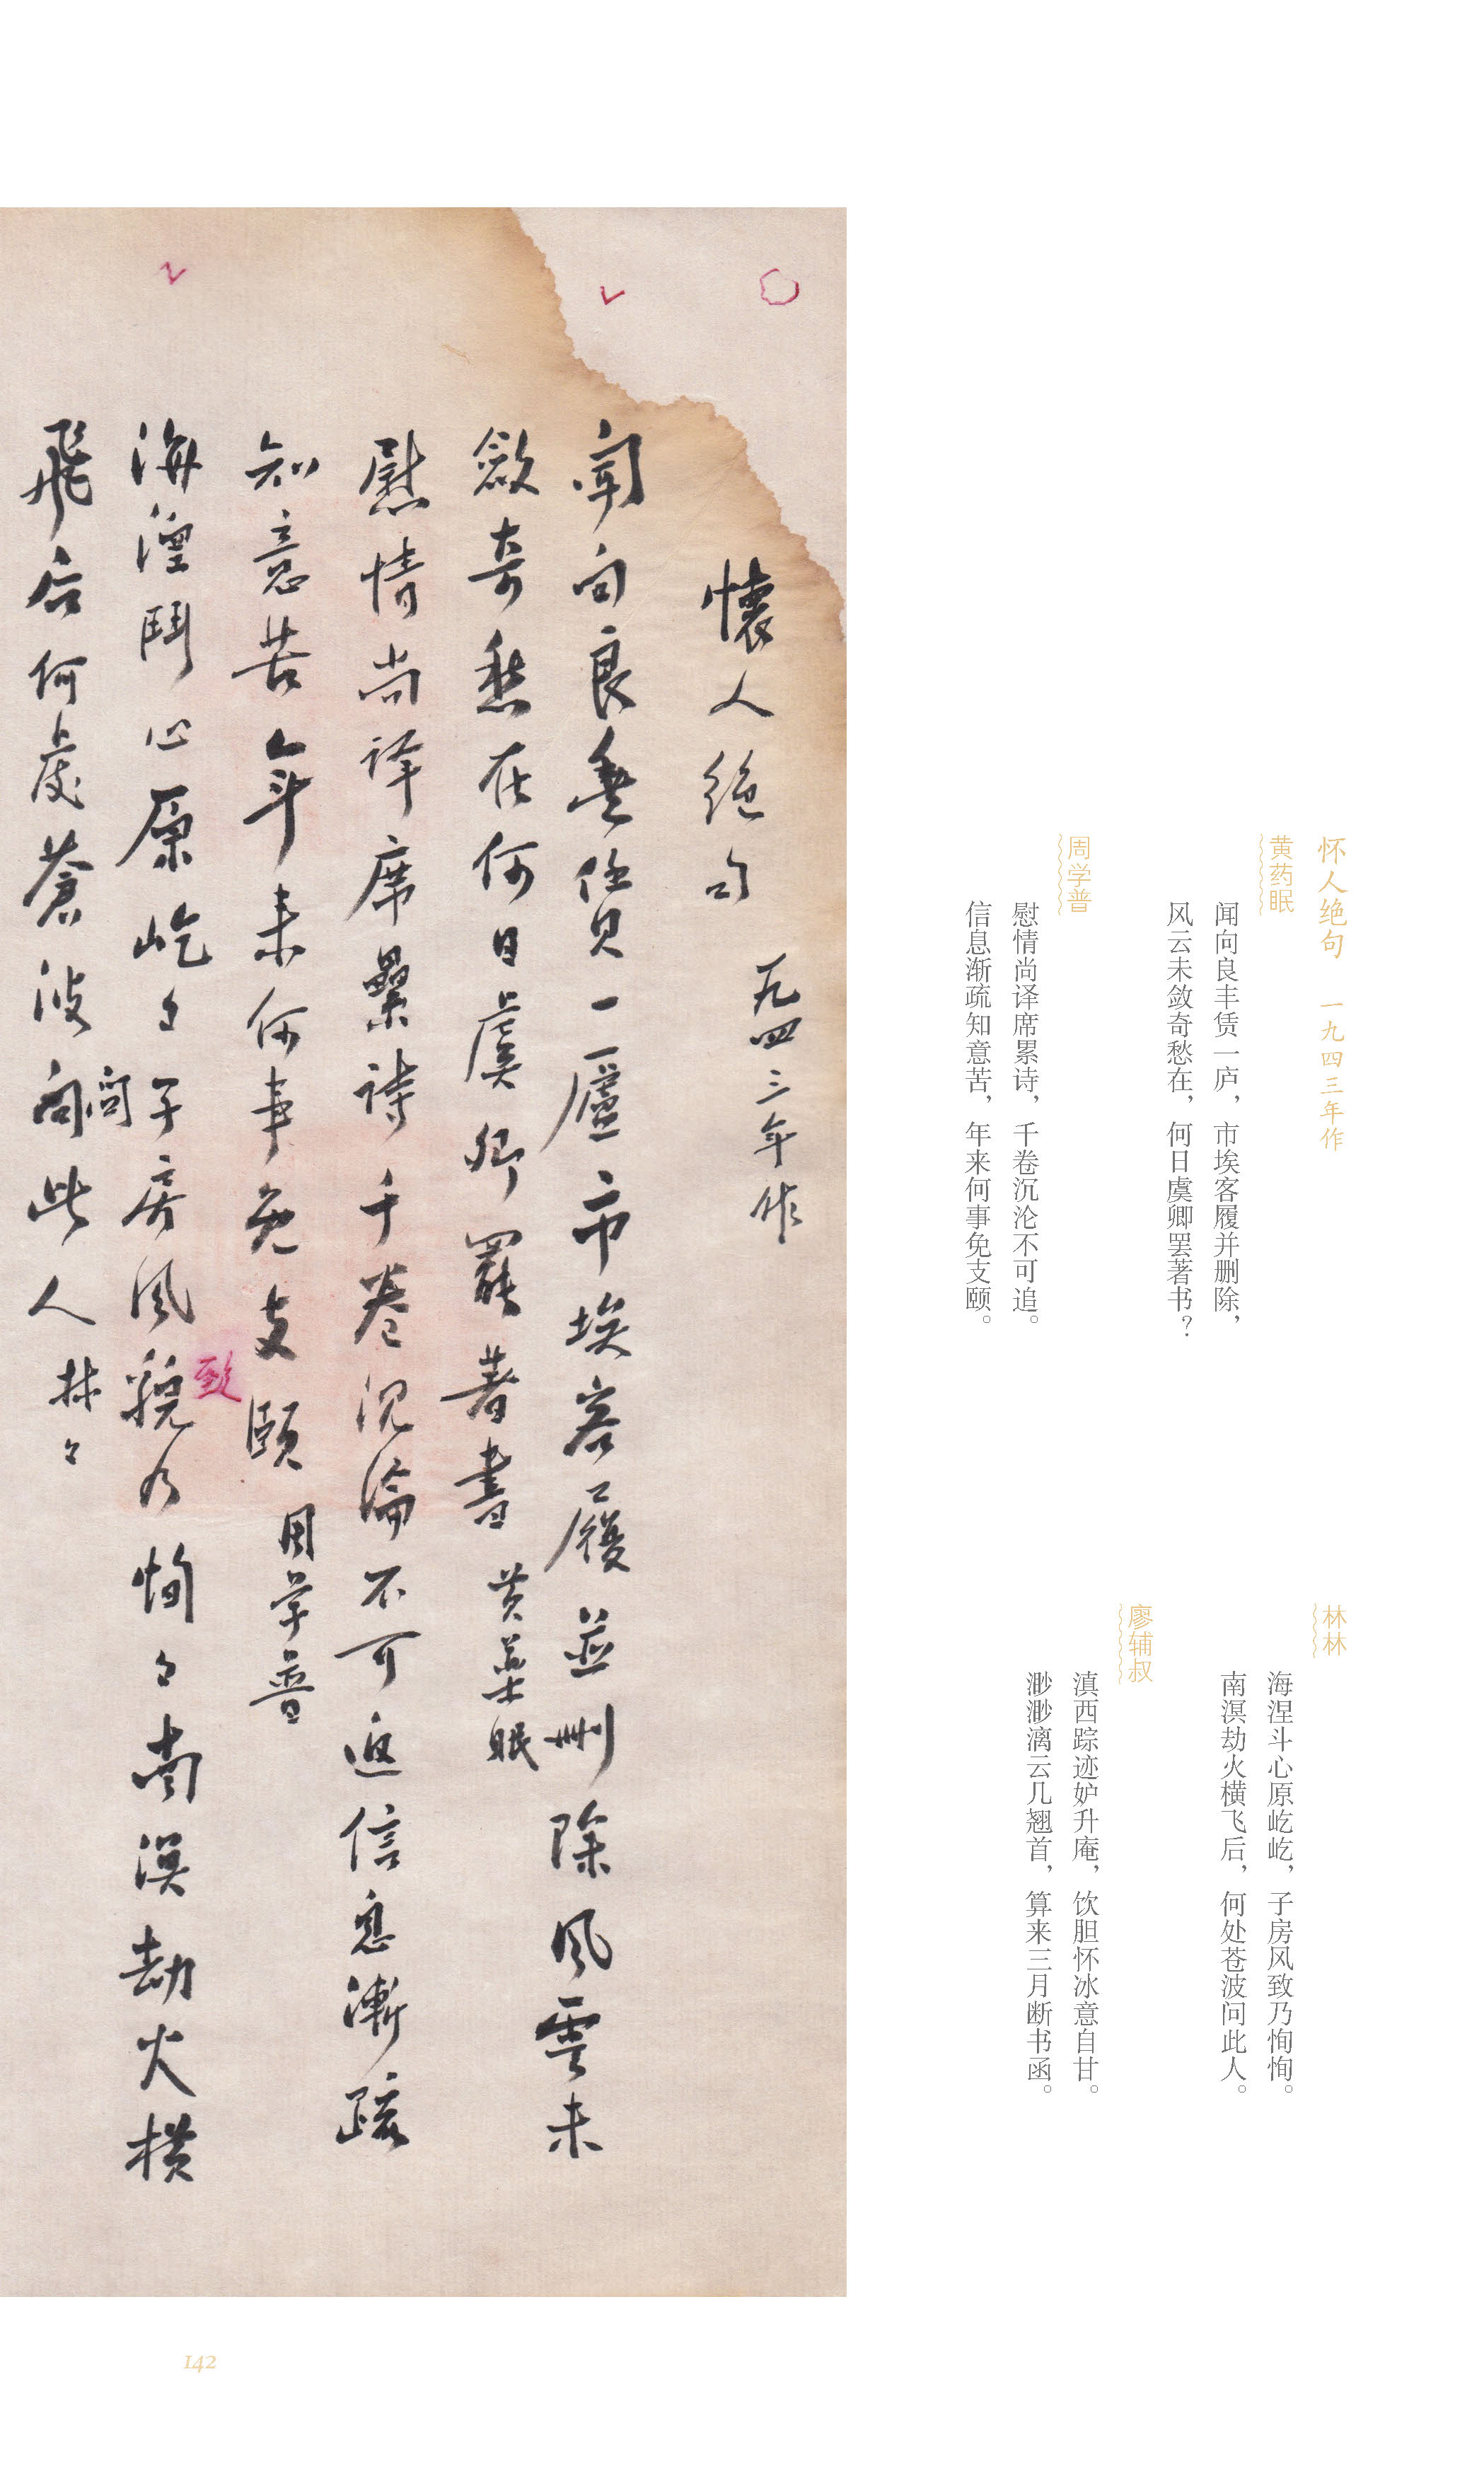 怀人绝句 一九四三年作
黄药眠
闻向良丰赁一庐，市埃客履并删除，
风云未敛奇愁在，何日虞卿罢著书？
周学普
慰情尚译席累诗，千卷沉沦不可追。
信息渐疏知意苦，年来何事免支颐。
林林
海涅斗心原屹屹，子房风致乃恂恂。
南溟劫火横飞后，何处苍波问此人。
廖辅叔
滇西踪迹妒升庵，饮胆怀冰意自甘。
渺渺漓云几翘首，算来三月断书函。
懷人绝句 一九四三年作
闻向良豊賃一廬市埃客履並刪除风雲未
斂奇愁在何日虞卿罷著書 黄藥眠
慰情尚译席纍诗千卷沉淪不可追信息漸疏
知意苦年来何事免支頤 周学普
海涅鬥心原屹々子房风貌乃恂々南溟劫火横
致
飛后何處蒼波向此人 林々
问
142